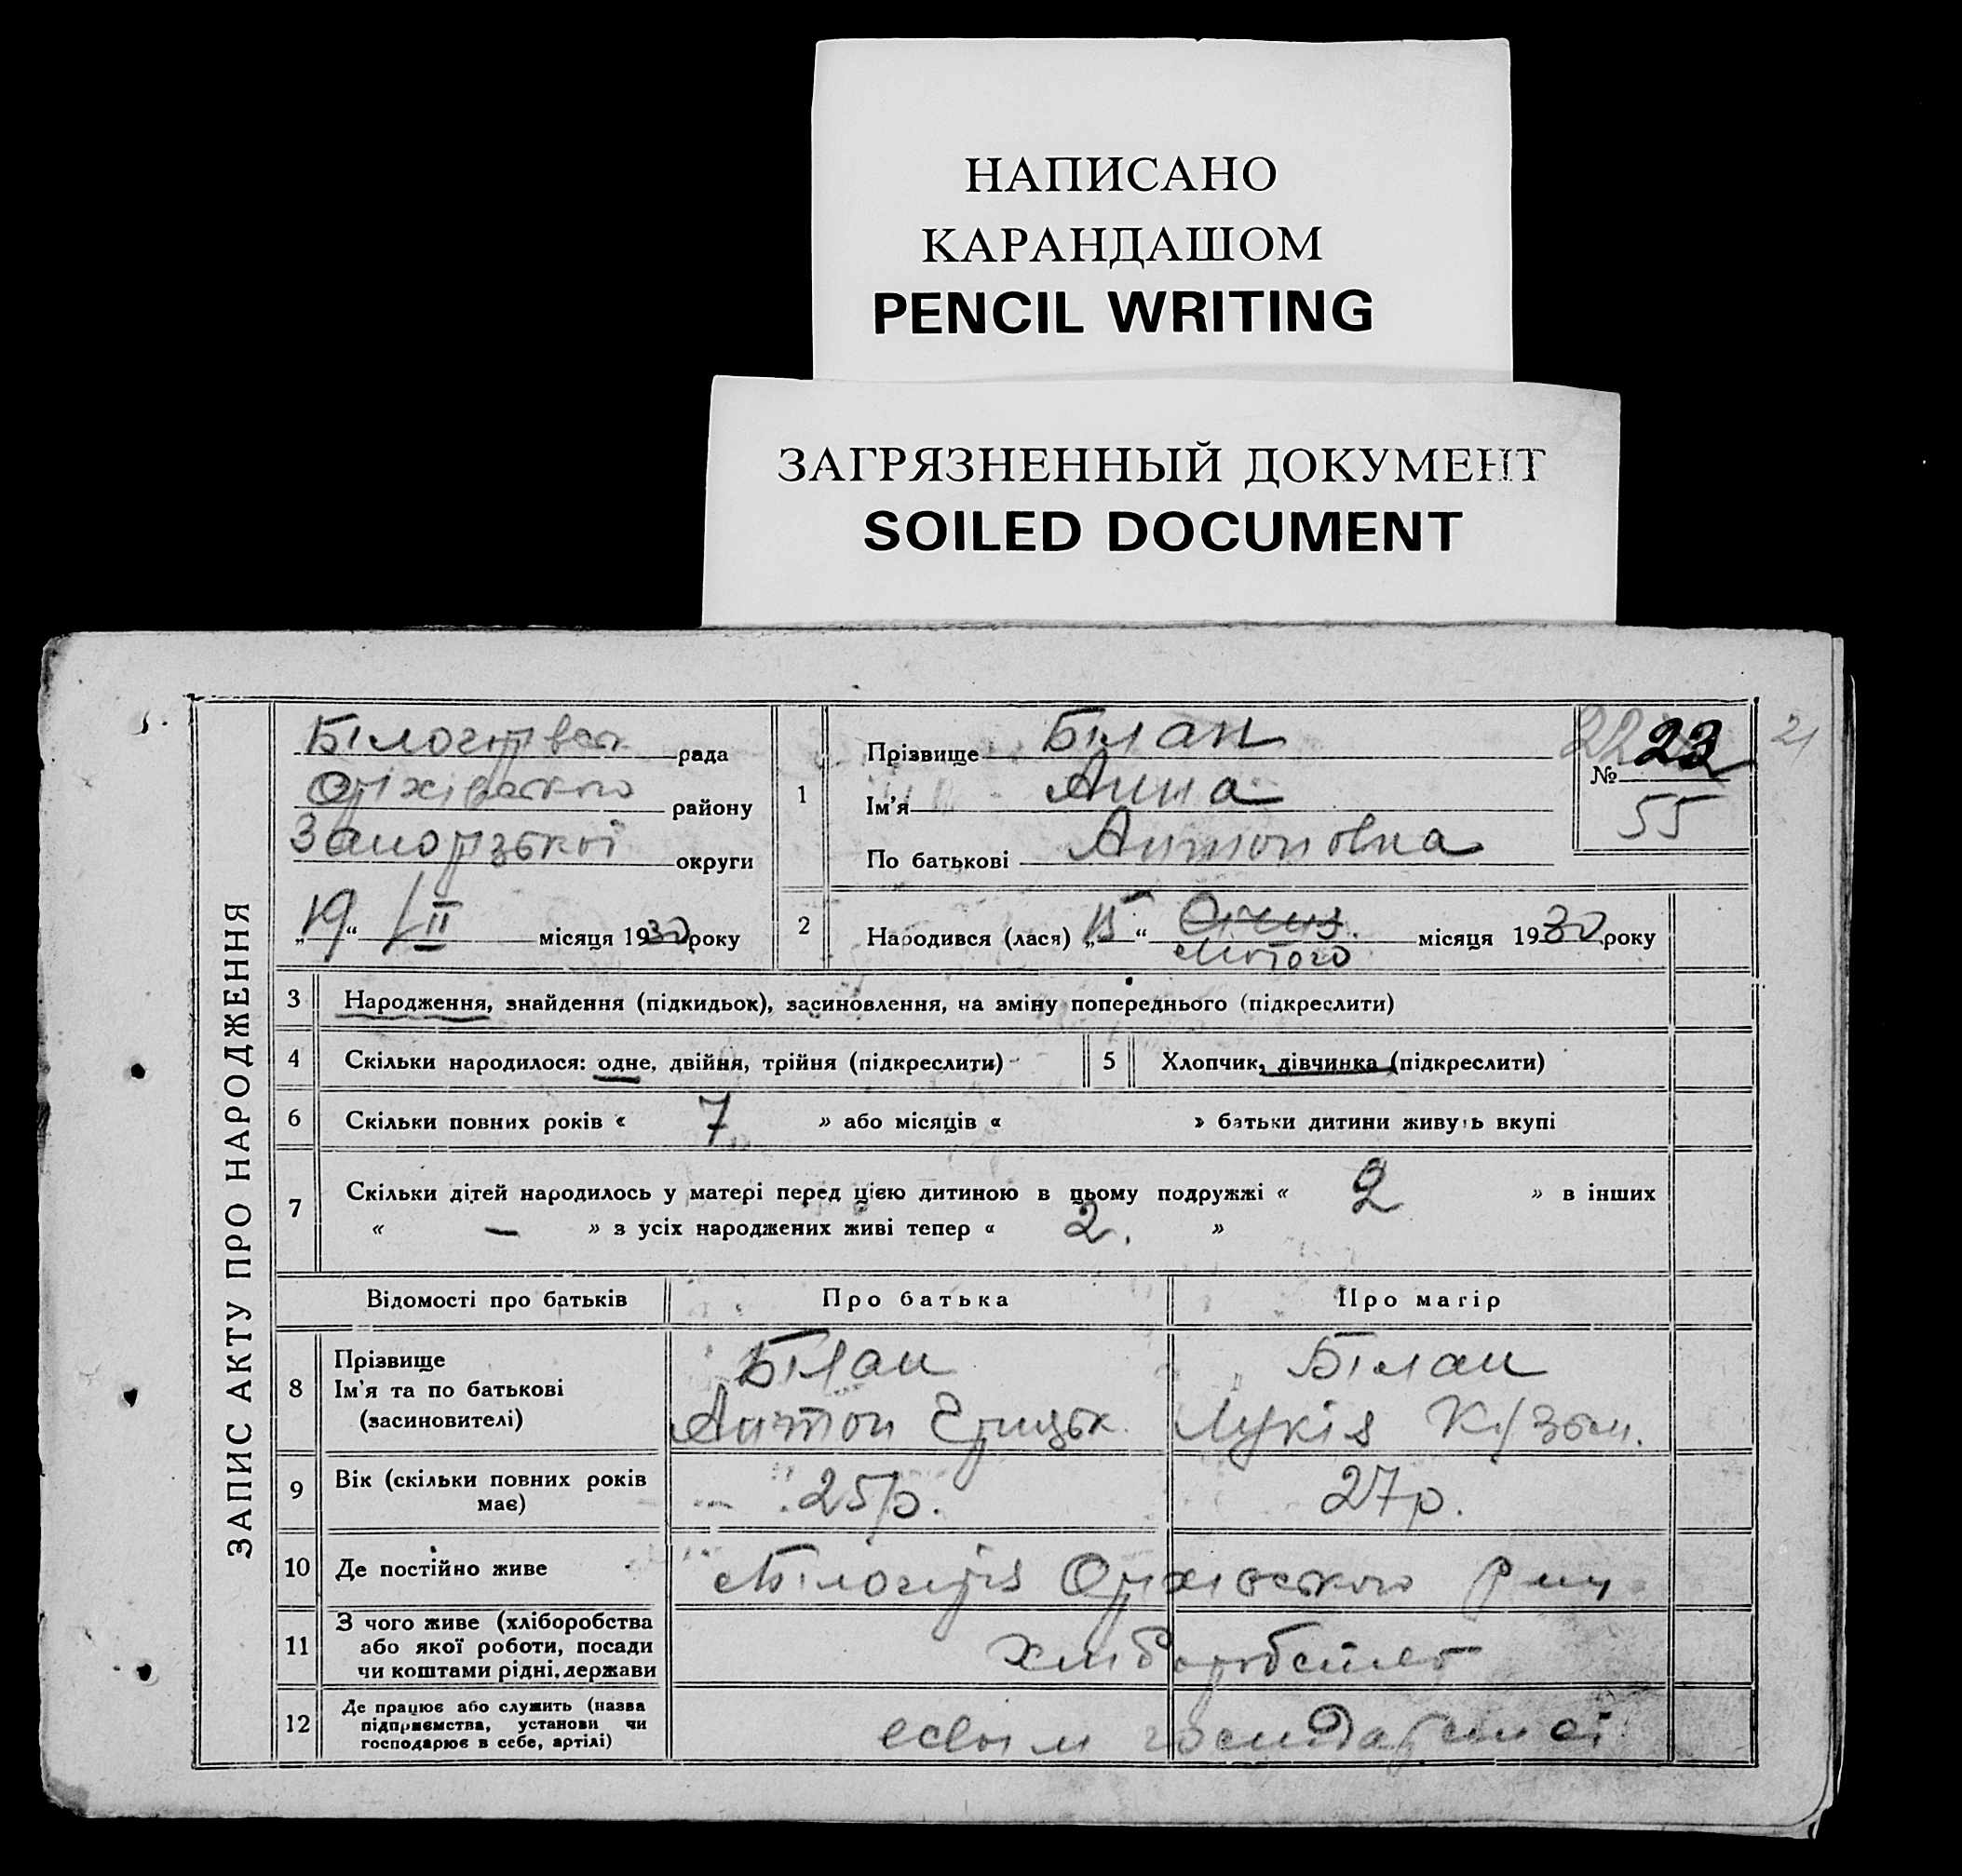 НАПИСАНО
КАРАНДАШОМ
PENCIL WRITING
ЗАГРЯЗНЕННЫЙ ДОКУМЕНТ
SOILED DOCUMENT
ЗАПИС АКТУ ПРО НАРОДЖЕННЯ
рада
Оріхівського району
округи
„19“ II місяця 1930 року
1
Прізвище Білан
Ім'я Анна
По батькові Антоновна
22 23
№
55
21
2
Народився (лася) „15“ Січня місяця 1930 року
Лютого
3 Народження, знайдення (підкидьок), засиновлення, на зміну попереднього (підкреслити)
4 Скільки народилося: одне, двійня, трійня (підкреслити) 5 Хлопчик, дівчинка (підкреслити)
6 Скільки повних років « 7 » або місяців « » батьки дитини живуть вкупі
7 Скільки дітей народилось у матері перед цією дитиною в цьому подружжі « 2 » в інших
« — » з усіх народжених живі тепер « 2. »
Відомості про батьків Про батька Про матір
8 Прізвище Білан Білан
Ім'я та по батькові Антон Грицьк. Лукія Кузьм.
(засиновителі)
9 Вік (скільки повних років 25 р. 27 р.
має)
10 Де постійно живе Оріхівського
11 З чого живе (хліборобства
або якої роботи, посади
чи коштами рідні, держави
12 Де працює або служить (назва
підприємства, установи чи
господарює в себе, артілі)